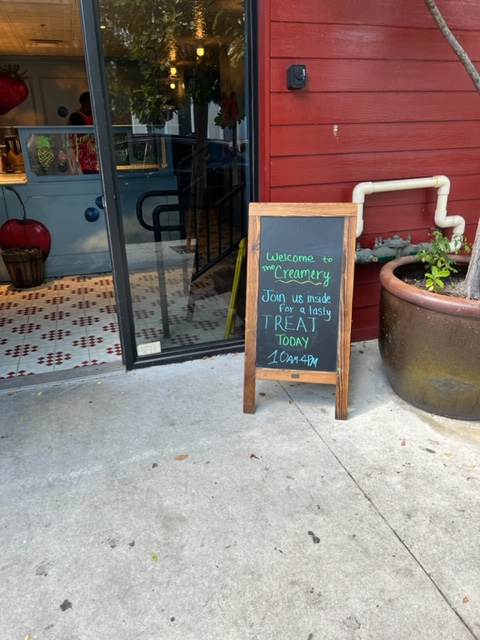 Welcome to
THE Creamery
Join us inside
for a tasty
TREAT
TODAY
10AM-4PM